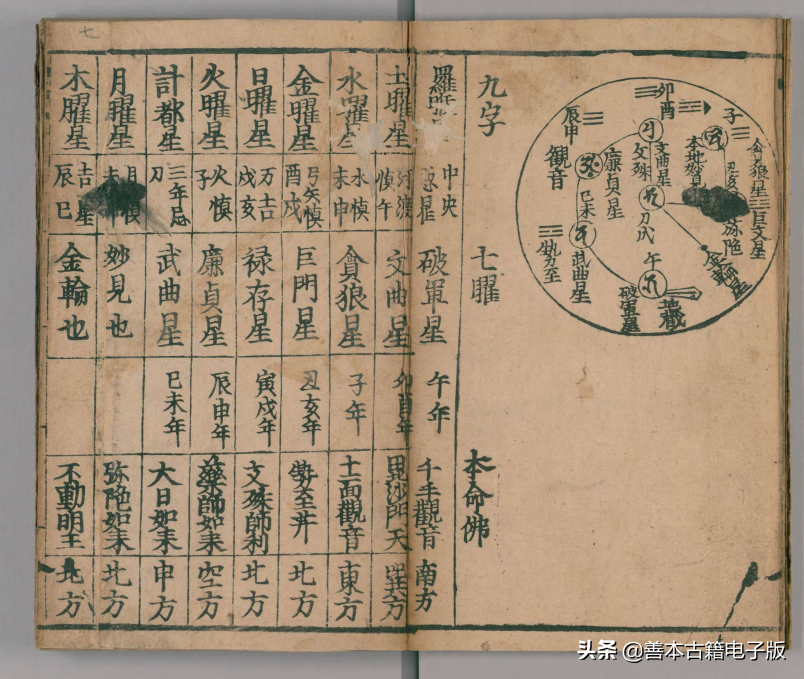 七
卯酉
子
辰申
観音
文殊
文曲星
廉貞星
本地妙見
貪狼星
巨文星
巳未
武曲星
勢至
午
破軍星
地蔵
九字
七曜
本命佛
中央
破軍星
午年
千手觀音
南方
土曜星
文曲星
卯酉年
毘沙門天
巽方
水曜星
水慎
未申
貪狼星
子年
十一面觀音
東方
金曜星
酉戌
巨門星
丑亥年
勢至井
北方
日曜星
万吉
戌亥
禄存星
寅戌年
文殊師利
北方
火曜星
火慎
子
廉貞星
辰申年
藥師如来
空方
計都星
三年忌
刀
武曲星
巳未年
大日如来
申方
月曜星
妙見也
弥陀如来
北方
木曜星
吉星
辰巳
金輪也
不動明王
北方
头条 @善本古籍电子版